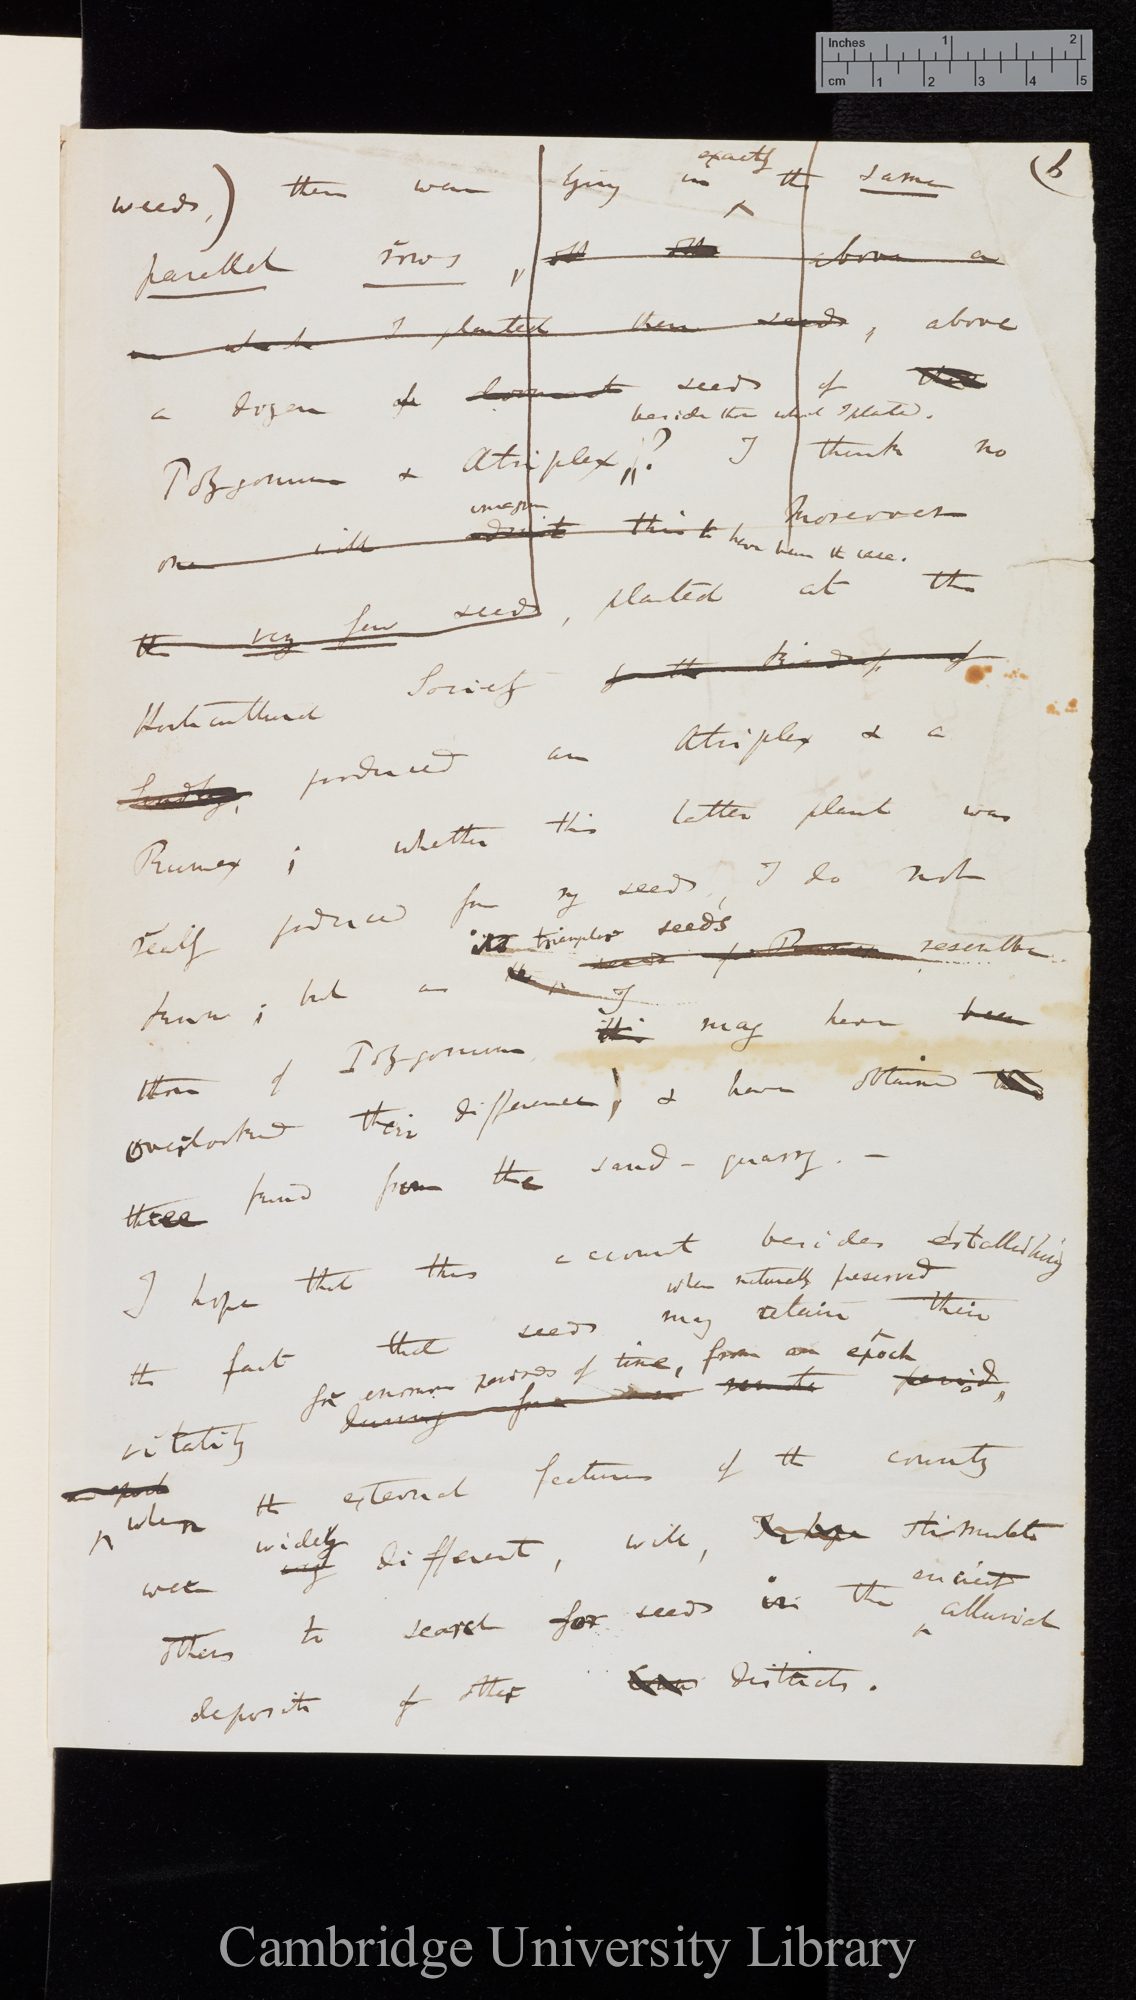 Inches 1 2
cm 1 2 3 4 5
(6
exactly
weeds,) there were lying in the same
parallel rows, above a
in which I planted them seeds, above
a dozen of dormant seeds of
beside those which I planted.
Polygonum & Atriplex,? I think no
imagine Moreover
one will admit this to have been the case.
the very few seeds, planted at the
Horticultural Society by the kindness of
Lindley, produced an Atriplex & a
Rumex; whether this latter plant was
really produced from my seeds, I do not
its triangular seeds
know; but as the seeds of Rumex resemble
those of Polygonum I may have been
overlooked their difference, & have obtained
three found from the sand-quarry. —
I hope that this account besides establishing
when naturally preserved
the fact that seeds may retain their
for enormous periods of time, from an epoch
vitality during from remote period,
an epoch
when the external features of the country
widely
were very different, will, I hope stimulate
ancient
others to search for seeds in the alluvial
deposits of other districts.
Cambridge University Library